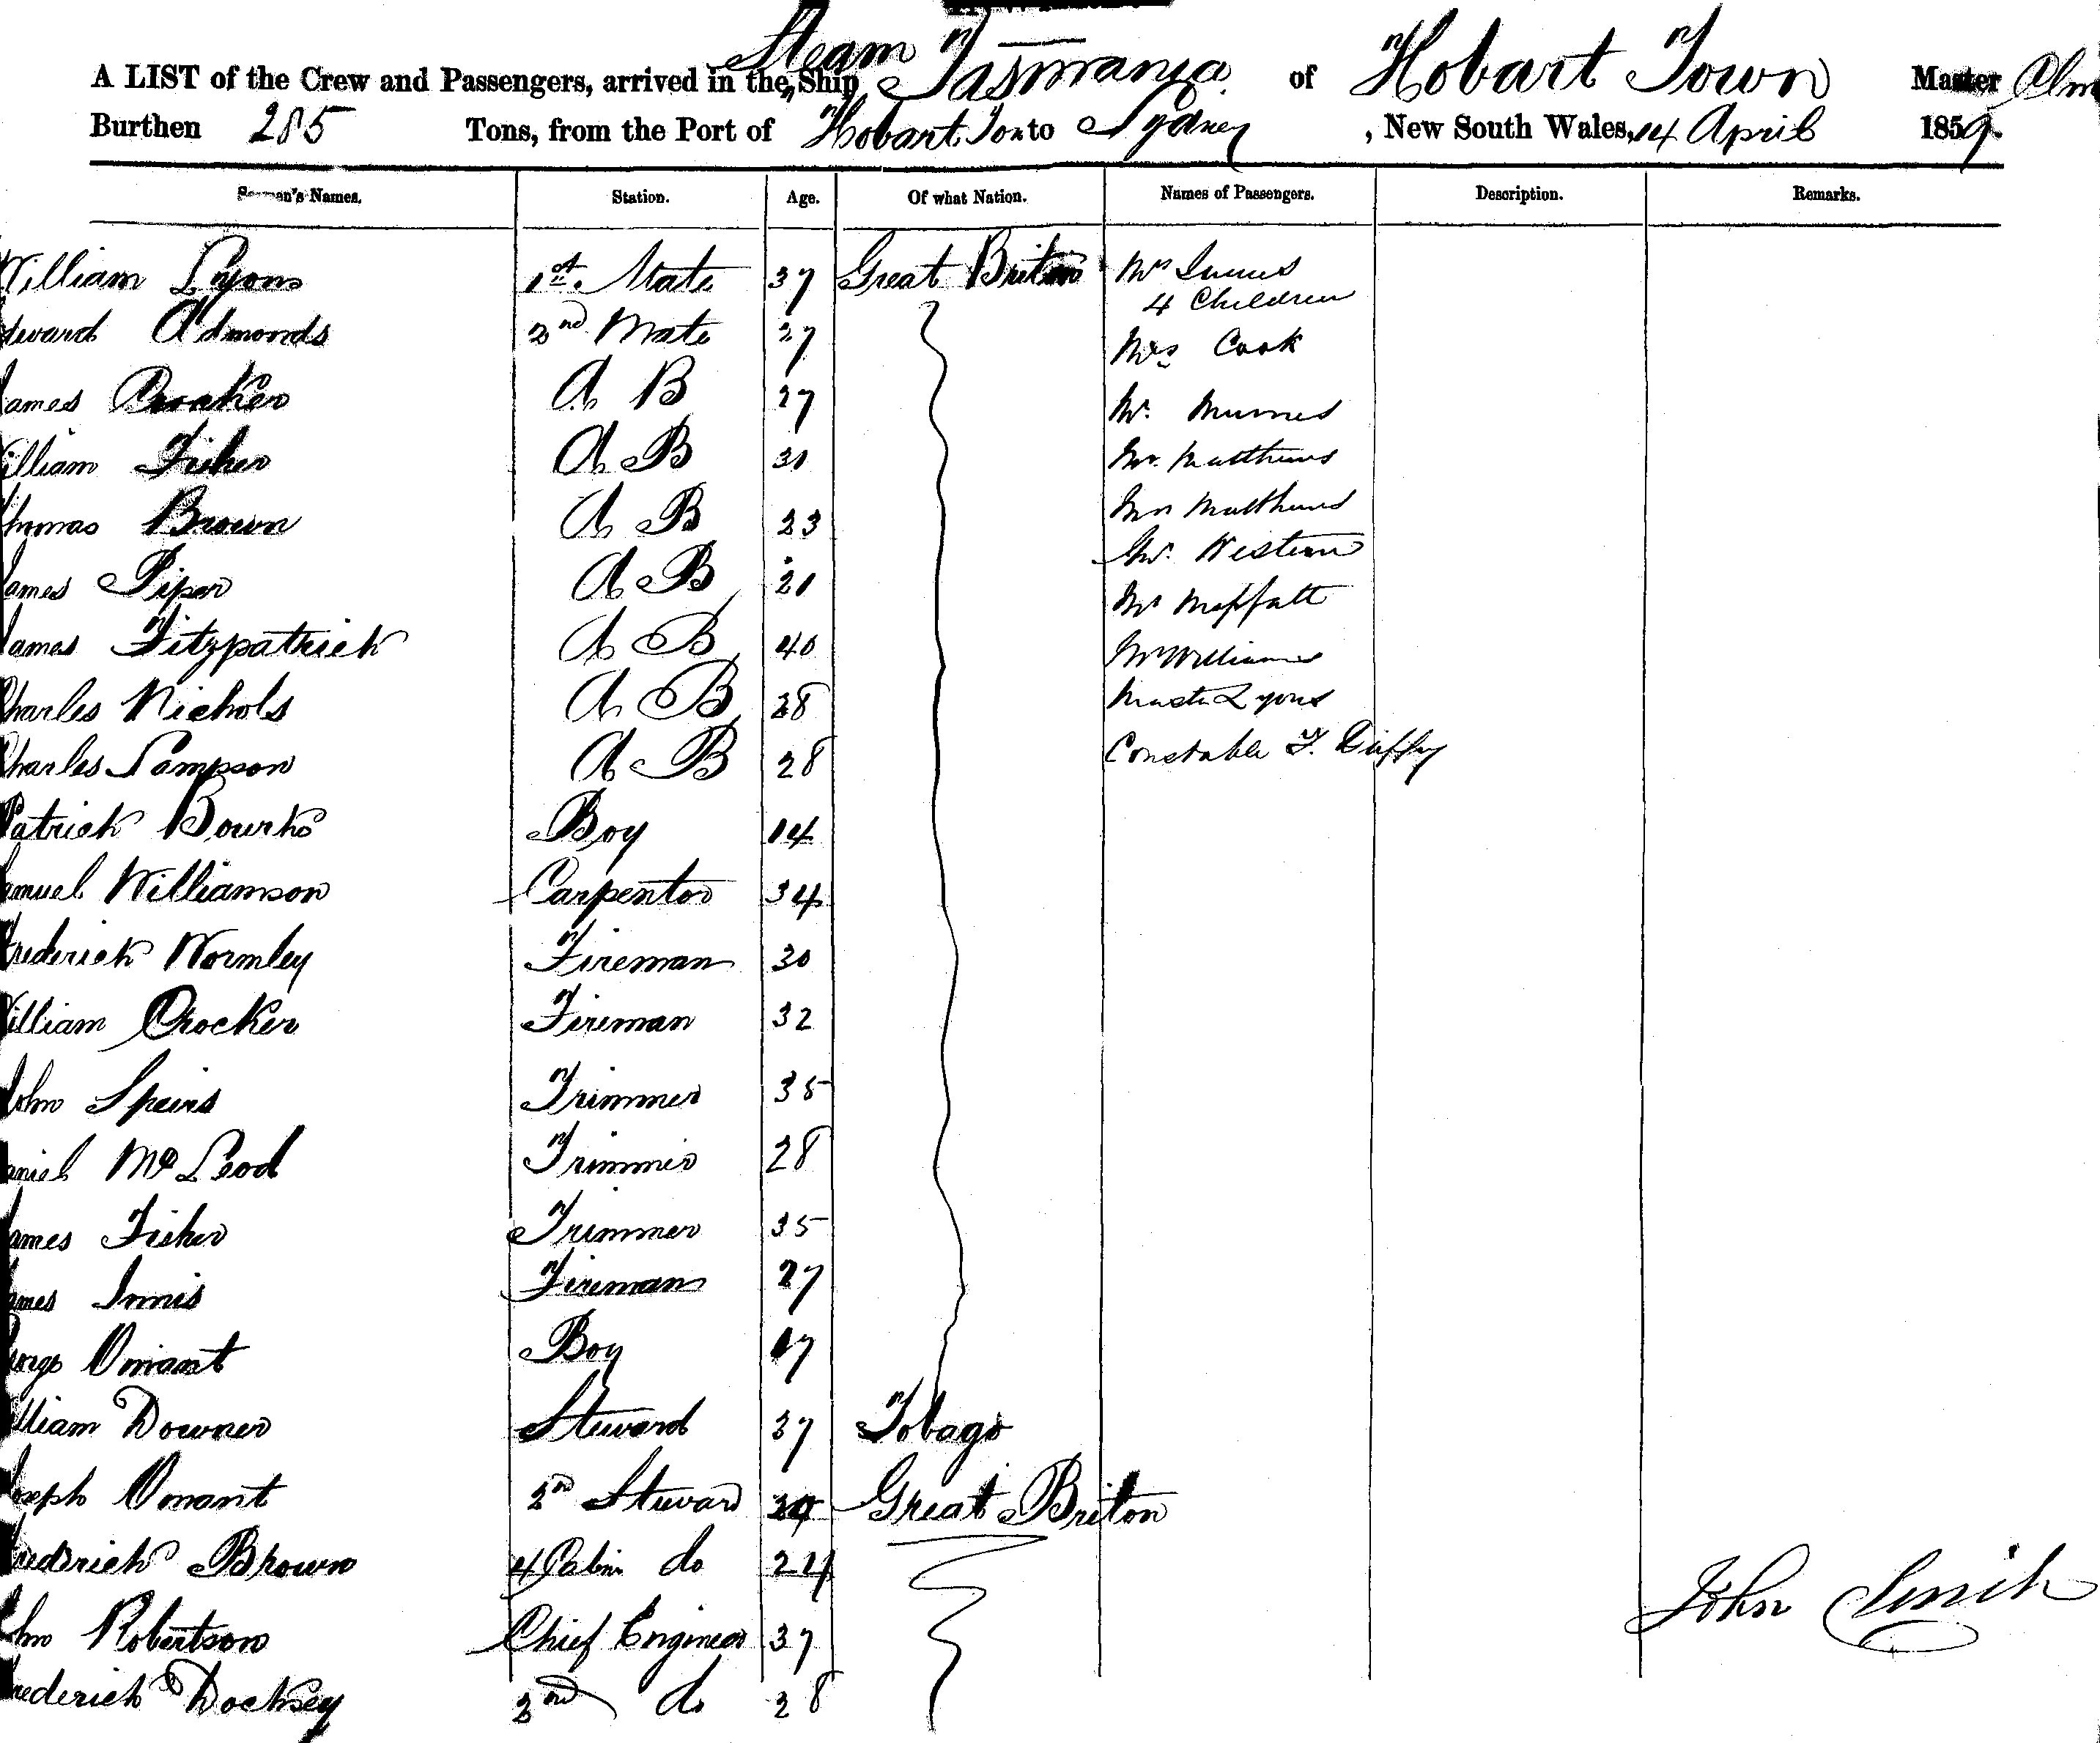 A LIST of the Crew and Passengers, arrived in the Steam Ship Tasmania of Hobart Town Master
Burthen 285 Tons, from the Port of Hobart Ton to Sydney, New South Wales, 14 April 1859
Seamen's Names. Station. Age. Of what Nation. Names of Passengers. Description. Remarks.
William Lyons 1st. Mate 37 Great Briton Mrs
4 Children
Edward Edmonds 2nd Mate 27 Mrs Cook
James A B 27 Mr.
William Fisher A B 31 Mr. Matthews
Thomas Brown A B 23 Mrs Matthews
James Piper A B 21 Mr. Western
Mr Moffatt
James Fitzpatrick A B 40 Mr Williams
Charles Nichols A B 28 Master Lyons
Charles Sampson A B 28 Constable F. Duffy
Patrick Bourke Boy 14
Samuel Williamson Carpenter 34
Frederick Wormley Fireman 30
William Crocker Fireman 32
John Speirs Trimmer 35
Daniel McLeod Trimmer 28
James Fisher Trimmer 35
James Innis Fireman 27
George Omant Boy 17
William Downer Steward 37 Tobago
Joseph Omant 2nd Steward Great Briton
Frederick Brown Cabin do 24
John Robertson Chief Engineer 37 John Smith
Frederick Docksey 2nd do 28